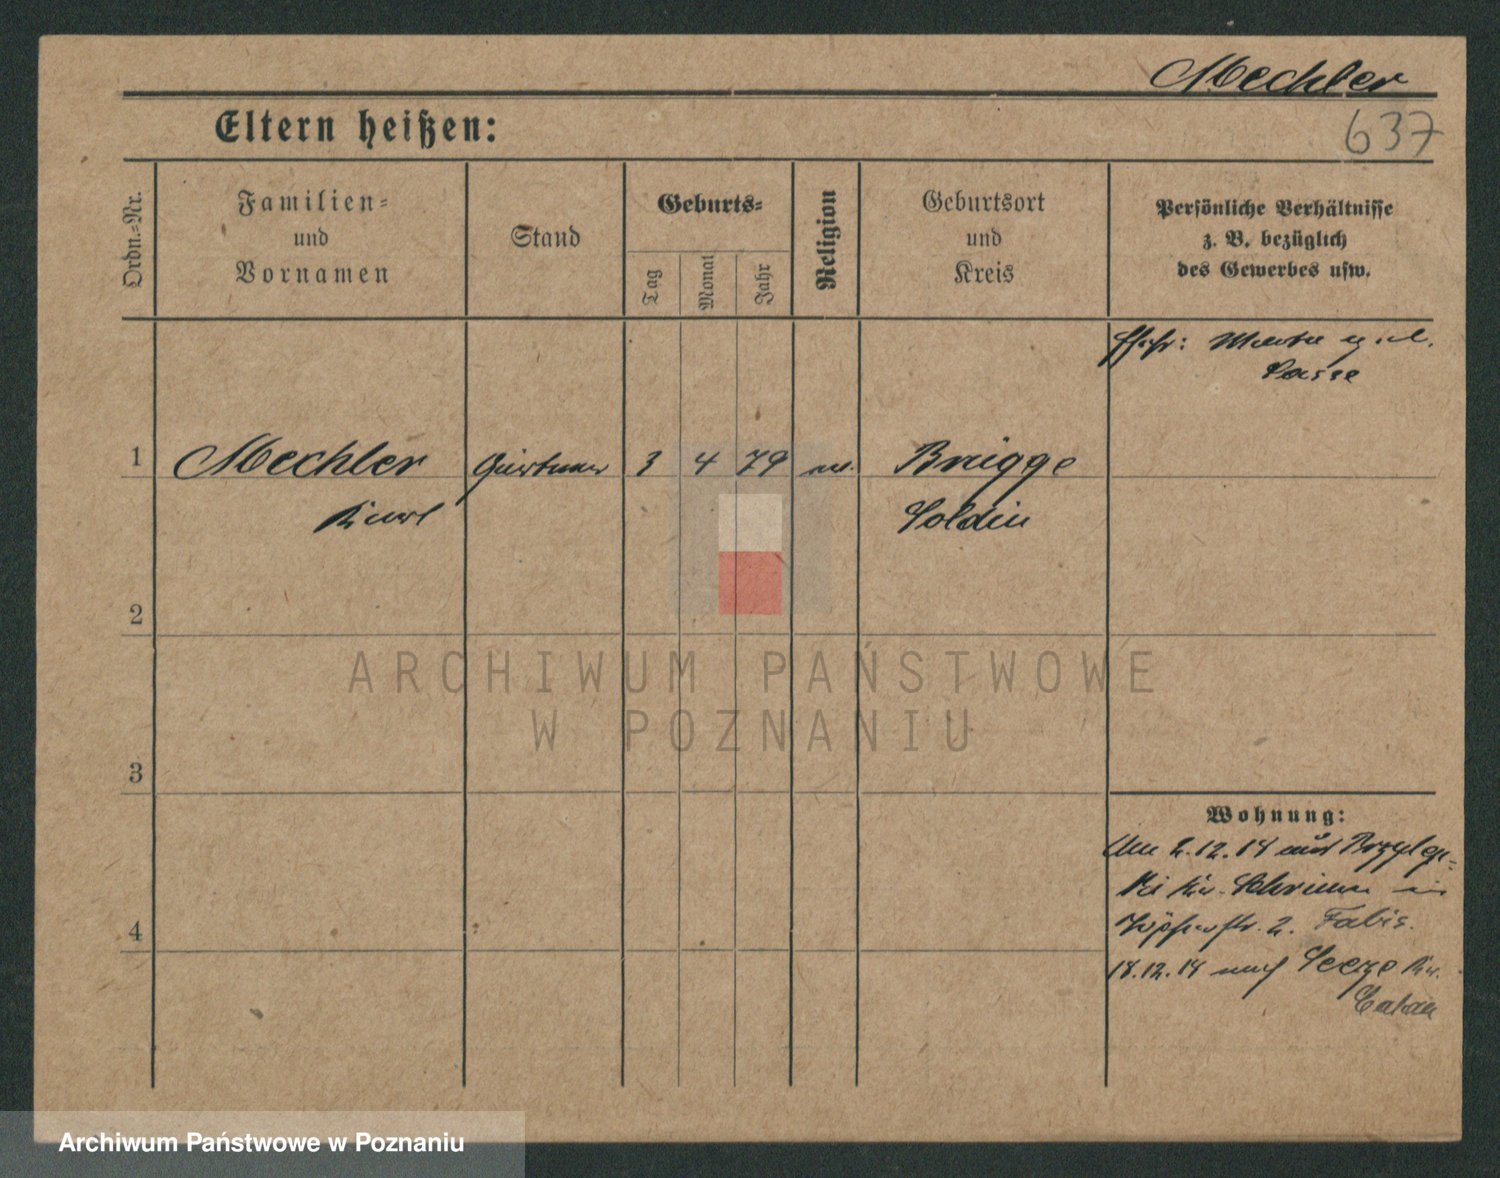 Mechler
637
Eltern heißen:
Ordn.-Nr.
Familien-
und
Vornamen
Stand
Geburts-
Tag
Monat
Jahr
Religion
Geburtsort
und
Kreis
Persönliche Verhältnisse
z. B. bezüglich
des Gewerbes usw.
1
Mechler
Gärtner
3
4
79
Brügge
Karl
Soldin
2
3
4
Wohnung:
2.12.19
Schrimm in
2. Fabis.
18.12.19 nach
ARCHIWUM PAŃSTWOWE
W POZNANIU
Archiwum Państwowe w Poznaniu